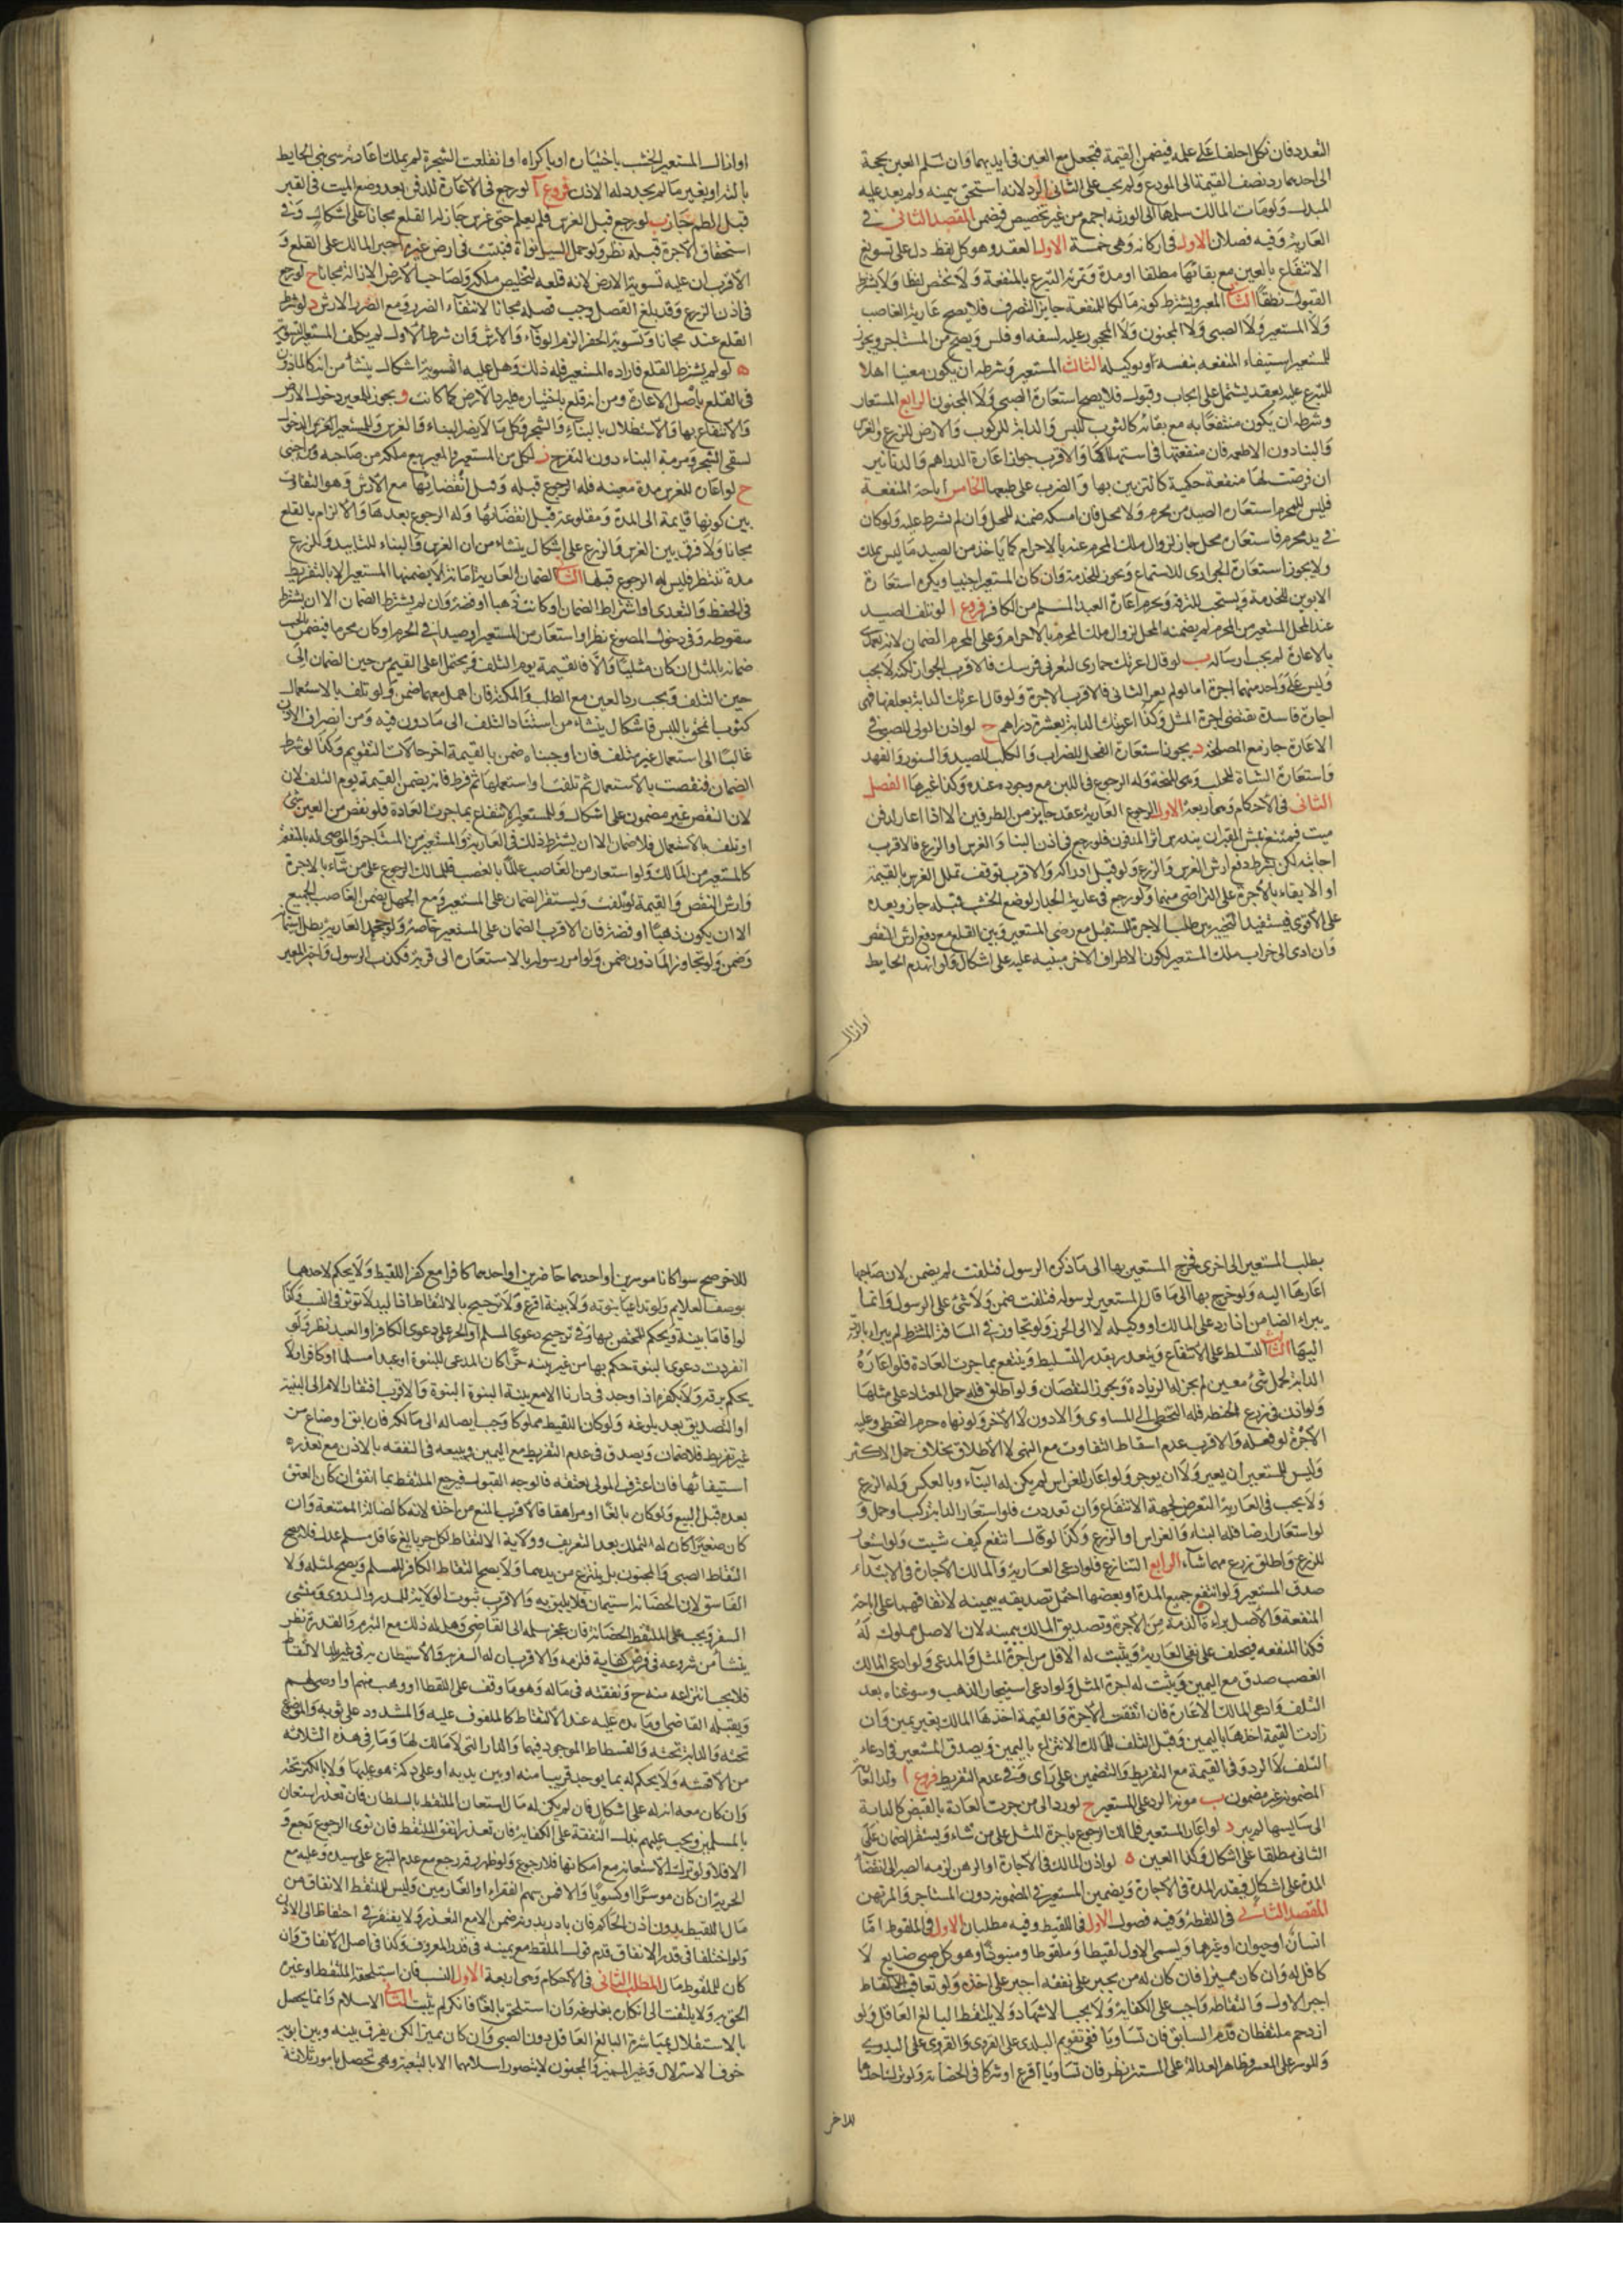 التعدد فان نكل احلفا على علمه فيضمن القيمة فتجعل مع العين فى ايديهما وان سلم العين بحجة
الى احدهما رد نصف القيمة الى المودع ولم يجب على الثانى الرد لانه استحق بيمينه ولم يعد عليه
المبدل ولو مات المالك سلمها الى الورثه اجمع من غير تخصيص فيضمن المقصد الثانى فى
العارية وفيه فصلان الاول فى اركانه وهى خمسة الاول العقد وهو كل لفظ دل على تسويغ
الانتفاع بالعين مع بقائها مطلقا او مدة وثمرته التبرع بالمنفعة ولا يختص لفظا ولا يشترط
القبول نطقا الثانى المعير ويشترط كونه مالكا للمنفعة جايز التصرف فلا يصح عارية الغاصب
ولا المستعير ولا الصبى ولا المجنون ولا المحجور عليه لسفه او فلس ويصح من المستاجر ويجوز
للمستعير استيفاء المنفعه بنفسه او بوكيله الثالث المستعير وشرطه ان يكون معينا اهلا
للتبرع عليه بعقد يشتمل على ايجاب وقبول فلا يصح استعارة الصبى ولا المجنون الرابع المستعار
وشرطه ان يكون منتفعا به مع بقائه كالثوب للبس والدابة للركوب والارض للزرع والغرس
والبنا دون الاطعمه فان منفعتها فى استهلاكها والاقرب جواز اعارة الدراهم والدنانير
ان فرضت لها منفعة حكمية كالتزيين بها والضرب على طبعها الخامس اباحة المنفعة
فليس للمحرم استعارة الصيد من محرم ولا محل فان امسكه ضمنه للمحل وان لم يشرط عليه ولو كان
فى يد محرم فاستعاره محل جاز لزوال ملك المحرم عنه بالاحرام كما ياخذ من الصيد ما ليس بملك
ولا يجوز استعارة الجوارى للاستمتاع ويجوز للخدمة وان كان المستعير اجنبيا ويكره استعارة
الابوين للخدمة ويستحب للترفه ويحرم اعارة العبد المسلم من الكافر فروع ا لو تلف الصيد
عند المحل المستعير من المحرم لم يضمنه المحل لزوال ملك المحرم بالاحرام وعلى المحرم الضمان لانه تعدى
بالاعارة لم يجب ارساله ب لو قال اعرتك حمارى لتعرنى فرسك فالاقرب الجواز لكنه لا يجب
وليس على واحد منهما اجرة اما لو لم يعر الثانى فالاقرب الاجرة ولو قال اعرتك الدابة بعلفها فهى
اجارة فاسدة تقتضى اجرة المثل وكذا اعرتك الدابة بعشرة دراهم ج لو اذن الولى للصبى فى
الاعارة جاز مع المصلحة د يجوز استعارة الفحل للضراب والكلب للصيد والسنور والفهد
واستعارة الشاة للحلب وهى المنحة وله الرجوع فى اللبن مع وجوده عنده وكذا غيرها الفصل
الثانى فى الاحكام وهى اربعة الاول الرجوع العارية عقد جايز من الطرفين الا اذا اعار لدفن
ميت فيمتنع نبش القبر الى ان يندرس اثر المدفون فلو رجع فى اذن البناء والغرس او الزرع فالاقرب
اجابته لكن بشرط دفع ارش الغرس والزرع ولو قبل ادراكه والاقرب توقف تملك الغرس بالقيمة
او الابقاء بالاجرة على التراضى منهما ولو رجع فى عارية الجدار لوضع الخشب قبله جاز وبعده
على الاقوى فيستفيد التخيير بين طلب الاجرة للمستقبل مع رضى المستعير وبين القلع مع دفع ارش النقص
وان ادى الى خراب ملك المستعير لكون الاطراف الاخر مبنية عليه على اشكال ولو انهدم الحايط
او ازال
او ازال المستعير الخشب باختياره او باكراه او انقلعت الشجرة لم يملك اعادته سوى بنى الحايط
بالته او بغيرها ما لم يجدد له الاذن فروع ا لو رجع فى الاعارة للدفن بعد وضع الميت فى القبر
قبل الطم جاز ب لو رجع قبل الغرس فلم يعلم حتى غرس جاز له القلع مجانا على اشكال وفى
استحقاق الاجرة قبله نظر ولو حمل السيل نواة فنبتت فى ارض غيره اجبر المالك على القلع و
الاقرب ان عليه تسوية الارض لانه قلعه لتخليص ملكه ولصاحب الارض الازالة مجانا ج لو رجع
فى اذن الزرع وقد بلغ الفصل وجب قصله مجانا لانتفاء الضرر ومع الضرر الارش د لو شرط
القلع عنده مجانا وتسوية الحفر الزم الوفاء ولا ارش وان شرط الاول لم يكلف المستعير التسوية
ه لو لم يشترط القلع فاراده المستعير فله ذلك وهل عليه التسوية اشكال ينشأ من انه كالماذون
فى القلع باصل الاعارة ومن انه قلع باختياره فليرد الارض كما كانت و يجوز للمعير دخول الارض
والانتفاع بها والاستظلال بالبناء والشجر وكل ما لا يضر البناء والغرس وللمستعير الدخول
لسقى الشجر ومرمة البناء دون التفرج ز لكل من المستعير والمعير بيع ملكه من صاحبه ومن اجنبى
ح لو اعاره للغرس مدة معينه فله الرجوع قبله وقبل انقضائها مع الارش وهو التفاوت
بين كونها قايمة الى المدة ومقلوعة قبل انقضائها وله الرجوع بعدها والالزام بالقلع
مجانا ولا فرق بين الغرس والزرع على اشكال ينشاء من ان الغرس والبناء للتابيد وللزرع
مدة تنتظر فليس له الرجوع قبلها الثانى الضمان العارية امانة لا يضمنها المستعير الا بالتفريط
فى الحفظ والتعدى او اشتراط الضمان او كانت ذهبا او فضة وان لم يشترط الضمان الا ان يشترط
سقوطه وفى دخول المصوغ نظر او استعار من المستعير او صيدا فى الحرم او كان محرما فيضمن
ضمانه بالمثل ان كان مثليا والا فالقيمة يوم التلف ويحتمل اعلى القيم من حين الضمان الى
حين التلف ويجب رد العين مع الطلب والمكنة فان اهمل معهما ضمن ولو تلف بالاستعمال
كثوب انمحق باللبس فاشكال ينشاء من استناد التلف الى ماذون فيه ومن انصراف الاذن
غالبا الى استعمال غير متلف فان اوجبناه ضمن بالقيمة اخر حالات التقويم وكذا لو شرط
الضمان فنقصت بالاستعمال ثم تلفت او استعملها ثم فرط فانه يضمن القيمة يوم التلف لان
لان النقص غير مضمون على اشكال وللمستعير الانتفاع بما جرت العادة فلو نقص من العين شئ
او تلف بالاستعمال فلا ضمان الا ان يشترط ذلك فى العارية والمستعير من المستاجر والموصى له بالمنفعة
كالمستعير من المالك ولو استعار من الغاصب عالما بالغصب فللمالك الرجوع على من شاء بالاجرة
وارش النقص والقيمة لو تلفت ويستقر الضمان على المستعير ومع الجهل يضمن الغاصب الجميع
الا ان يكون ذهبا او فضة فان الاقرب الضمان على المستعير خاصة ولو جحد العارية بطل استئمانه
وضمن ولو تجاوز الماذون ضمن ولو امر رسوله بالاستعارة الى قرية فكذب الرسول واخبر المعير
بطلب المستعير الى اخرى فخرج المستعير بها الى ما ذكره الرسول فتلفت لم يضمن لان صاحبها
اعارها اليه ولو خرج بها الى ما قال المستعير لرسوله فتلفت ضمن ولا شئ على الرسول وانما
يبراء الضامن اذا رد على المالك او وكيله لا الى الحرز ولو تجاوز فى المسافة المشترطة لم يبراء بالرد
اليها الثالث التسلط على الانتفاع ويتقدر بقدر التسليط وينتفع بما جرت العادة فلو اعاره
الدابة لحمل شئ معين لم يجز له الزيادة ويجوز النقصان ولو اطلق فله حمل المعتاد على مثلها
ولو اذن فى زرع الحنطه فله التخطى الى المساوى والادون لا الاخر ولو نهاه حرم التخطى وعليه
الاجرة لو فعله والاقرب عدم اسقاط التفاوت مع النهى لا الاطلاق بخلاف حمل الاكثر
وليس للمستعير ان يعير ولا ان يوجر ولو اعاره للغراس لم يكن له البناء وبالعكس وله الزرع
ولا يجب فى العارية التعرض لجهة الانتفاع وان تعددت فلو استعار الدابة ركب او حمل و
لو استعار ارضا فله البناء والغراس او الزرع وكذا لو قال انتفع كيف شيت ولو استعار
للزرع واطلق زرع مهما شاء الرابع التنازع فلو ادعى العارية والمالك الاجارة فى الابتداء
صدق المستعير ولو انتفع جميع المدة او بعضها احتمل تصديقه بيمينه لاتفاقهما على اباحة
المنفعة والاصل براءة الذمة من الاجرة وتصديق المالك بيمينه لان الاصل مملوك له
فكذا المنفعه فيحلف على نفى العارية ويثبت له الاقل من اجرة المثل والمدعى ولو ادعى المالك
الغصب صدق مع اليمين ويثبت له اجرة المثل ولو ادعى استيجار الذهب وسوغناه بعد
التلف وادعى المالك الاعارة فان اتفقت الاجرة والقيمة اخذها المالك بغير يمين وان
زادت القيمة اخذها باليمين وقبل التلف للمالك الانتزاع باليمين ويصدق المستعير فى ادعاء
التلف لا الرد وفى القيمة مع التفريط والتضمين على راى وفى عدم التفريط فروع ا ولد العارية
المضمونة غير مضمون ب مونة الرد على المستعير ج لو رد الى من جرت العادة بالقبض كالدابة
الى سايسها لم يبر د لو اعار المستعير فللمالك الرجوع باجرة المثل على من شاء ويستقر الضمان على
الثانى مطلقا على اشكال وكذا العين ه لو اذن المالك فى الاجارة او الرهن لزمه الصبر الى انقضاء
المدة على اشكال فيقدر المدة فى الاجارة ويضمن المستعير فى المضمونة دون المستاجر والمرتهن
المقصد الثالث فى اللقطة وفيه فصول الاول فى اللقيط وفيه مطلبان الاول فى الملقوط اما
انسان او حيوان او غيرهما ويسمى الاول لقيطا وملقوطا ومنبوذا وهو كل صبى ضايع لا
كافل له وان كان مميزا فان كان له من يجبر على نفقته اجبر على اخذه ولو تعاقب الالتقاط
اجبر الاول والتقاطه واجب على الكفاية ولا يجب الاشهاد ولا يلتقط البالغ العاقل ولو
ازدحم ملتقطان قدم السابق فان تساويا ففى تقديم البلدى على القروى والقروى على البدوى
والموسر على المعسر وظاهر العدالة على المستتر نظر فان تساويا اقرع او شركا فى الحضانة ولو ترك احدهما
للاخر
للاخر صح سوا كانا موسرين او احدهما حاضرين او احدهما كافرا مع كفر اللقيط ولا يحكم لاحدهما
بوصف العلايم ولو تداعيا بنوته ولا بينة اقرع ولا ترجيح بالالتقاط اذ اليد لا توثر فى النسب وكذا
لو اقاما بينة ويحكم للمختص بها وفى ترجيح دعوى المسلم او الحر على دعوى الكافر او العبد نظر ولو
انفردت دعوى البنوة حكم بها من غير بينه حرا كان المدعى للبنوة او عبدا مسلما او كافرا ولا
يحكم برقه ولا بكفره اذا وجد فى دارنا الا مع بينة البنوة والاقرب افتقار الام الى البينة
او التصديق بعد بلوغه ولو كان اللقيط مملوكا وجب ايصاله الى مالكه فان ابق او ضاع من
غير تفريط فلا ضمان ويصدق فى عدم التفريط مع اليمين ويبيعه فى النفقه بالاذن مع تعذره
استيفائها فان اعترف المولى بعتقه فالوجه القبول فيرجع الملتقط بما انفق ان كان العتق
بعده قبل البيع ولو كان بالغا او مراهقا فالاقرب المنع من اخذه لانه كالضالة الممتنعة وان
كان صغيرا كان له التملك بعد التعريف وولاية الالتقاط لكل حر بالغ عاقل مسلم عدل فلا يصح
التقاط الصبى والمجنون بل ينتزع من يدهما ولا يصح التقاط الكافر للمسلم ويصح لمثله ولا
الفاسق لان الحضانة استيمان فلا يليق به والاقرب ثبوت الولاية للمبذر والبدوى ومنشى
السفر ويجب على الملتقط الحضانة فان عجز سلمه الى القاضى وهل له ذلك مع التبرم والقدرة نظر
ينشأ من شروعه فى فرض كفاية فلزمه والاقرب ان له السفر به والاستيطان به فى غير بلد الالتقاط
فلا يجب انتزاعه منه ح ونفقته فى ماله وهو ما وقف على اللقطا او وهب منهم او اوصى لهم
ويقبله القاضى وما يده عليه عند الالتقاط كالملفوف عليه والمشدود على ثوبه والموضوع
تحته والدابة تحته والفسطاط الموجود فيها والدار التى لا مالك لها وما فى هذه الثلاثه
من الاقمشه ولا يحكم له بما يوجد قريبا منه او بين يديه او على دكة هو عليها ولا بالكنز تحته
وان كان معه انه له على اشكال فان لم يكن له مال استعان الملتقط بالسلطان فان تعذر استعان
بالمسلمين ويجب عليهم بذل النفقة على الكفاية فان تعذر انفق الملتقط فان نوى الرجوع رجع و
الا فلا ولو ترك الاستعانة مع امكانها فلا رجوع ولو ظهر رقه رجع مع عدم التبرع على سيده وعليه مع
الحرية ان كان موسرا او كسوبا والا فمن سهم الفقراء او الغارمين وليس للملتقط الانفاق من
مال اللقيط بدون اذن الحاكم فان بادر بدونه ضمن الا مع التعذر ولا يفتقر فى احتفاظه الى الاذن
ولو اختلفا فى قدر الانفاق قدم قول الملتقط مع يمينه فى قدر المعروف وكذا فى اصل الانفاق وان
كان للملقوط مال المطلب الثانى فى الاحكام وهى اربعة الاول النسب فان استلحقه الملتقط او غيره
الحق به ولا يلتفت الى انكاره بعد بلوغه وان استلحق بالغا فانكر لم يثبت الثانى الاسلام وانما يحصل
بالاستقلال بمباشرة البالغ العاقل دون الصبى وان كان مميزا لكن يفرق بينه وبين ابويه
خوف الاسترلال وغير المميز والمجنون لا يتصور اسلامهما الا بالتبعية وهى تحصل بامور ثلاثة